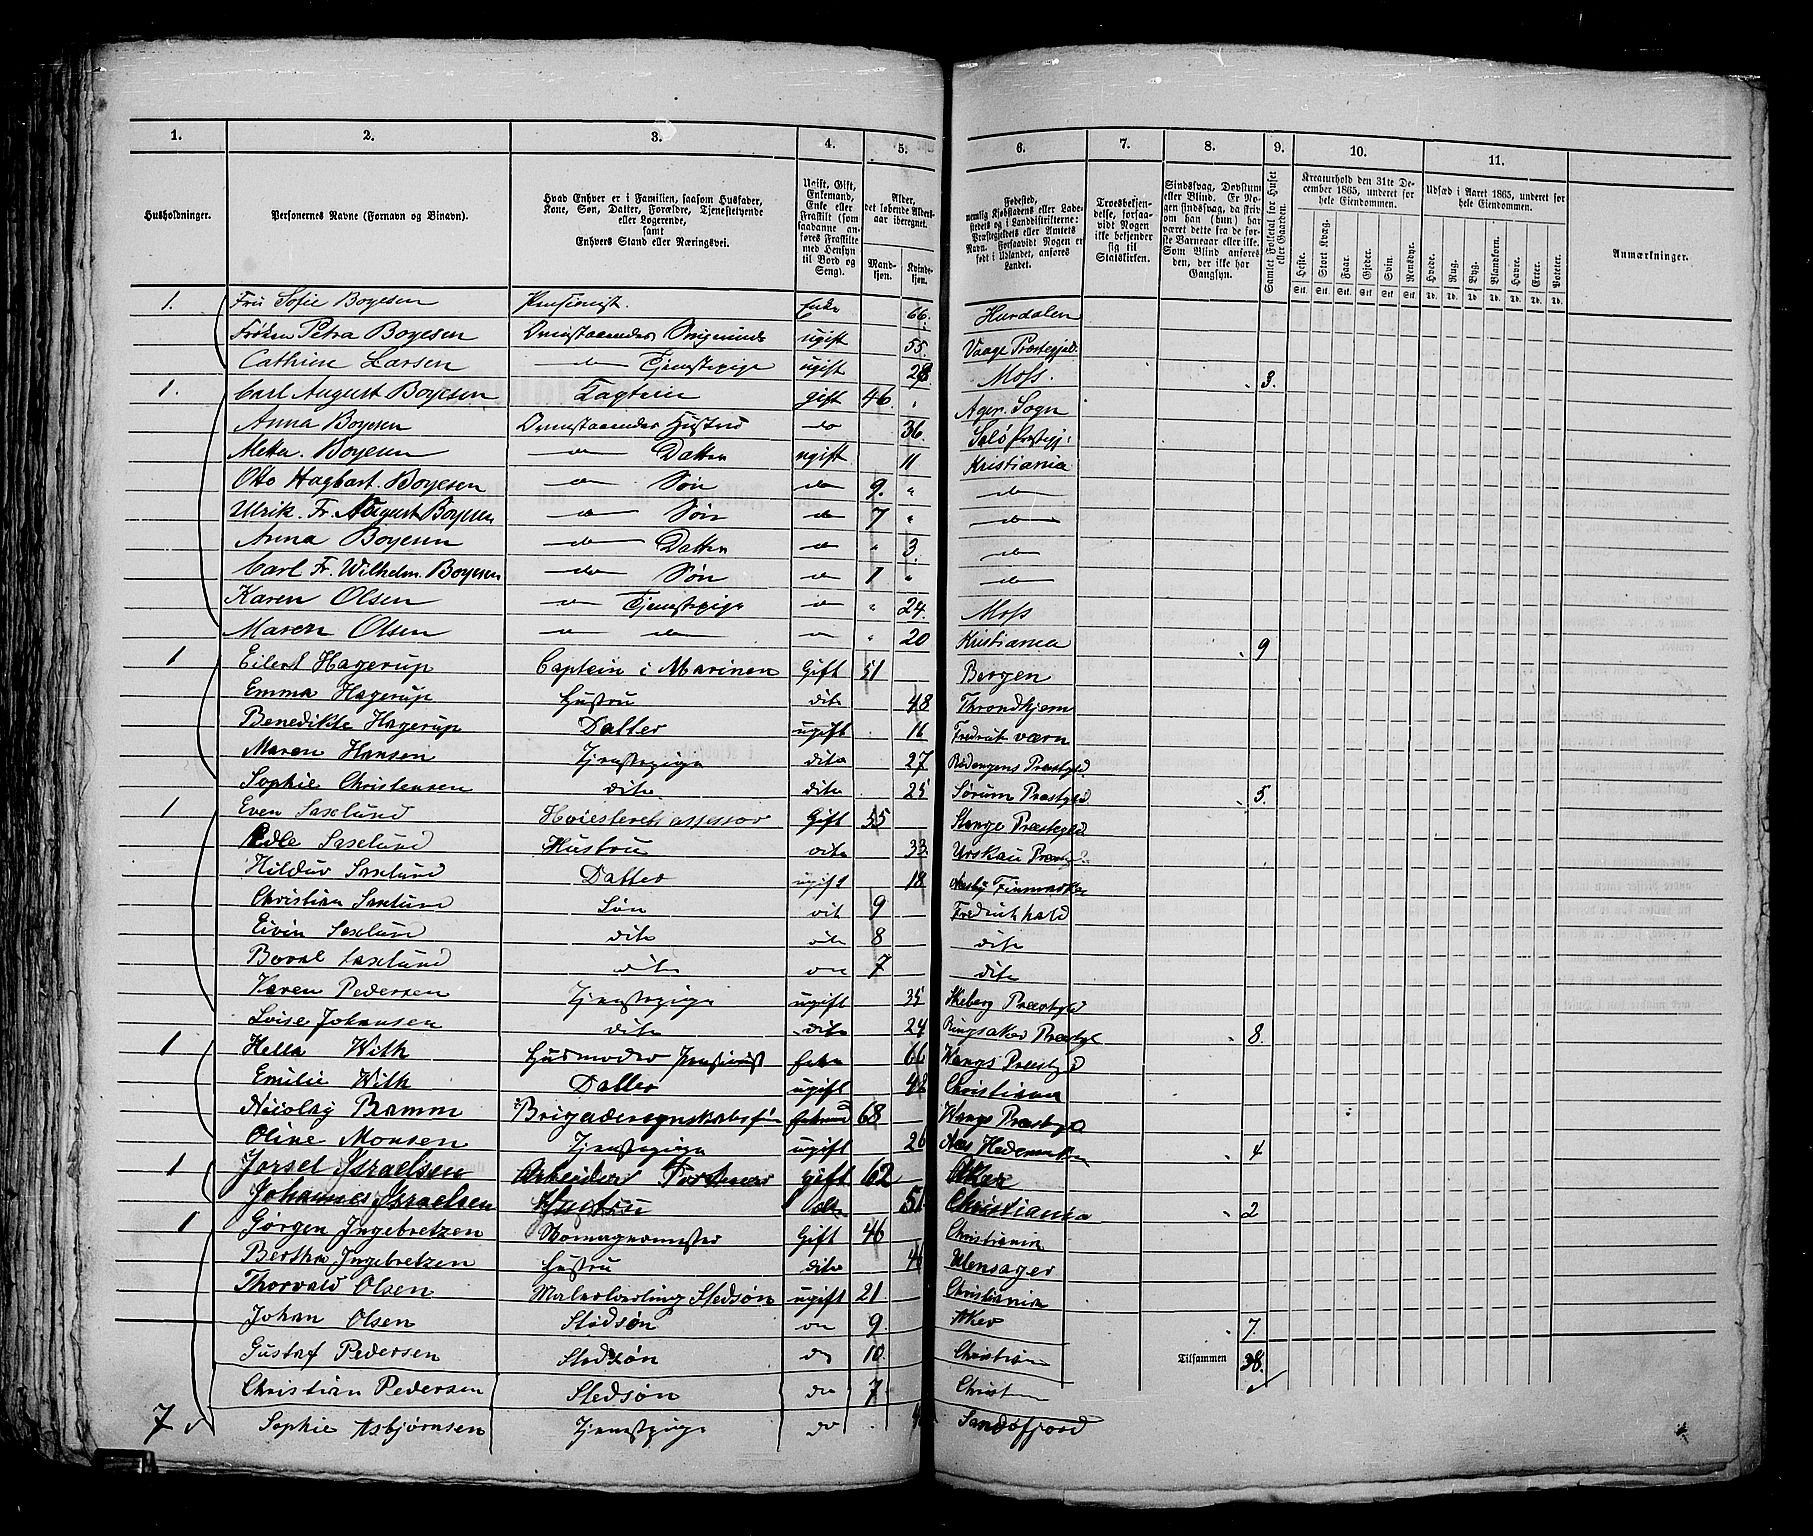 1. 2. 3. 4. 5. 6. 7. 8. 9. 10. 11.
Husholdninger.
Personernes Navne (Fornavn og Binavn).
Hvad Enhver er i Familien, saasom Husfader, Kone, Søn, Datter, Forældre, Tjenestetyende eller Logerende, samt Enhvers Stand eller Næringsvei.
Ugift, Gift, Enkemand, Enke eller Fraskilt (som saadanne anføres Fraskilte med Hensyn til Bord og Seng).
Alder, det løbende Alders-aar iberegnet.
Mandkjøn. Kvindekjøn.
Fødested, nemlig Kjøbstadens eller Ladestedets og i Landdistrikterne: Præstegjeldets eller Amtets Navn. Forsaavidt Nogen er født i Udlandet, anføres Landet.
Troesbekjendelse, forsaavidt Nogen ikke bekjender sig til Statskirken.
Sindssvag, Døvstum eller Blind. Er Nogen sindssvag, da skriv om han (hun) har været dette fra de første Barneaar eller ikke. Som Blind anføres den, der ikke har Gangsyn.
Samlet Folketal for Huset eller Gaarden.
Kreaturhold den 31te December 1865, underet for hele Eiendommen.
Heste. Stort Kvæg. Faar. Gjeder. Svin. Rensdyr.
Stk. Stk. Stk. Stk. Stk. Stk.
Udsæd i Aaret 1865, underet for hele Eiendommen.
Hvede. Rug. Byg. Blandkorn. Havre. Erter. Poteter.
Td. Td. Td. Td. Td. Td. Td.
Anmærkninger.
1. Fru Sofie Boyesen Pensionist. Enke 66. Hurdalen
Frøken Petra Boyesen Ovenstaaendes ugift 55. Vaage Præstegjeld.
Cathrine Larsen — do — Tjenestepige ugift 28 Moss. 3.
1. Carl August Boyesen gift 46. " Ager. Sogn
Anna Boyesen Ovenstaaendes Hustru do 36.
Boyesen — do — Datter ugift 11 Kristiania
Otto Hagbart. Boyesen — do — Søn do 9. " — do —
Ulrik. Fr. August Boyesen — do — Søn do 7 " — do —
Anna Boyesen — do — Datter do " 3. — do —
Carl Fr. Wilhelm. Boyesen — do — Søn do 1 " — do —
Karen Olsen — do — Tjenestepige do " 24. Moss
Maren Olsen — do — do do " 20 Kristiania 9
1 Eilert Hagerup Captein i Marinen Gift 51 Bergen
Emma Hagerup Hustru dito 48 Throndhjem
Benedikte Hagerup Datter ugift 16 Fredriksværn
Maren Hansen Tjenestepige dito 27 Rødengens Præstgld
Sophie Christensen dito dito 25 Sørum Præstgld 5.
1 Even Saxlund Høiesteretsassessor Gift 55 Stange Præstegld
Edle Saxlund Hustru dito 33 Urskau
Hildur Saxlund Datter ugift 18 Finmarken
Christian Saxlund Søn dit 9 Fredrikshald
Eivin Saxlund dito dito 8 dito
Saxlund dito do 7 dito
Karen Pedersen Tjenestepige ugift 35 Skeberg Præstgld
Lvise Johansen dito dito 24 Ringsaker Præstgl 8.
1 Hella With Husmoder Pensionist Enke 66 Vangs Præstgld
Emilie With Datter ugift 48 Christiania
Nicolay Ramm 68 Vangs Præstgld
Oline Monsen Tjenestepige ugift 26 Næs Hedemarken 4
1 Israelsen Arbeider gift 62 Aker
Johanne Israelsen Hustru do 51 Christiania 2
1 Gørgen Ingebretzen Skomagermester Gift 46 Christiania
Bertha Ingebretzen Hustru dito Ulensager
Thorvald Olsen Malerlærling Stedsøn ugift 21 Christiania
Johan Olsen Stedsøn do 9 Aker 7.
Gustaf Pedersen Stedsøn do 10. Tilsammen 38.
Christian Pedersen Stedsøn do 7
7 Sophie Asbjørnsen Tjenestepige do Sandefjord